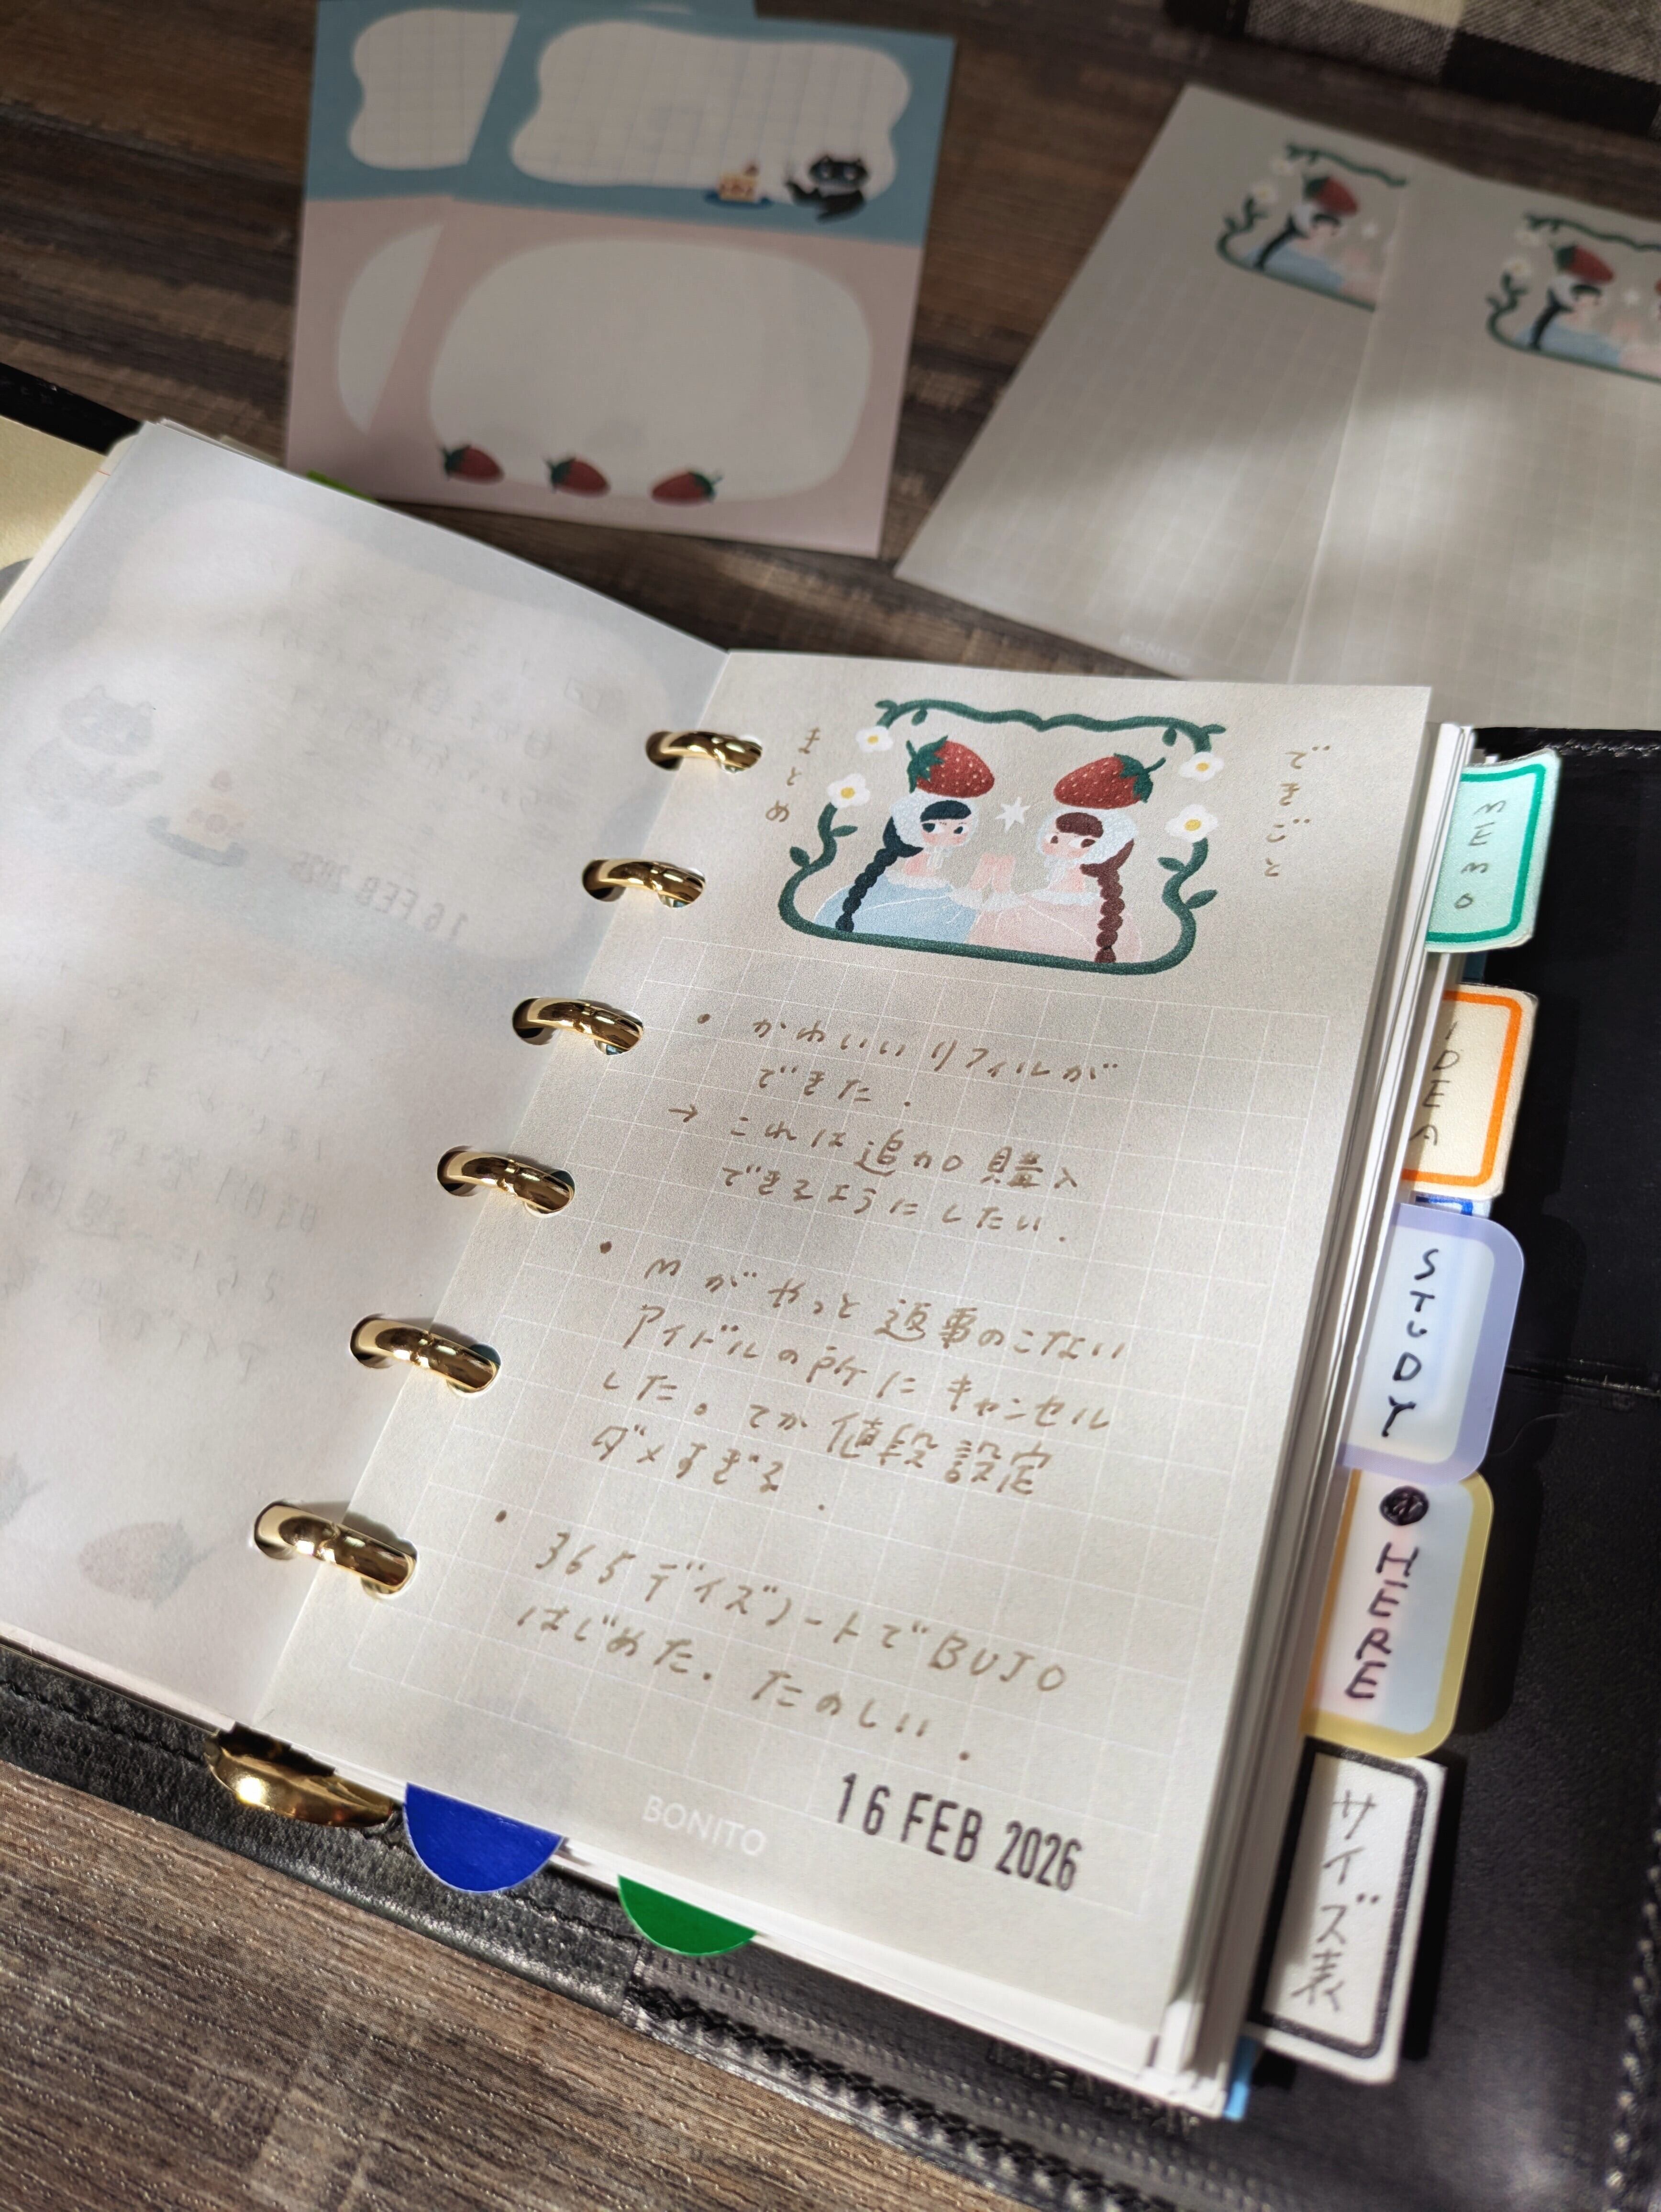 できごと
まとめ
・かわいいリフィルが
できた.
→ これは追加購入
できるようにしたい.
・Mがやっと返事のこない
アイドルの所にキャンセル
した。てか値段設定
ダメすぎる.
・365デイズノートでBUJO
はじめた. たのしい.
16 FEB 2026
BONITO
MEMO
IDEA
STUDY
HERE
サイズ表
16 FEB 2026